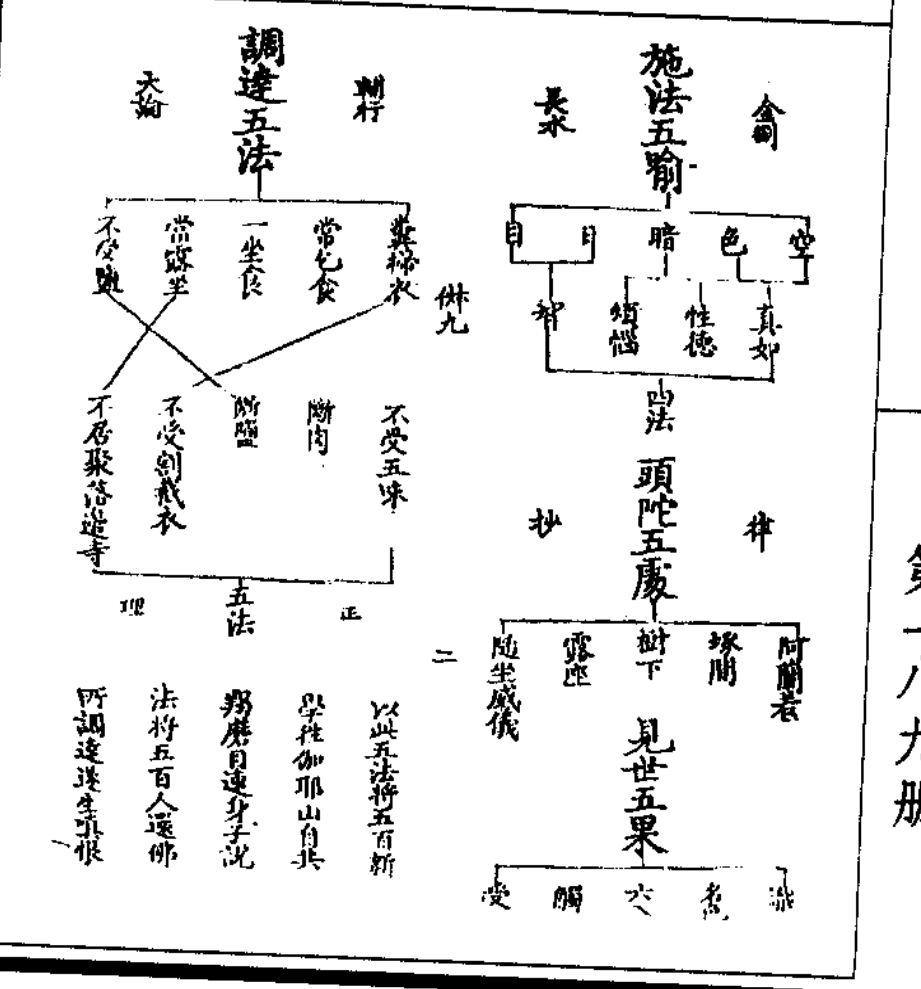 第一八九册
施法五喻
金剛
長水
空
色
暗
日
目
真如
性德
煩惱
智
四法
頭陀五處
律
抄
阿蘭若
塚間
樹下
露座
隨坐威儀
見世五果
識
名色
六入
觸
受
佛九
二
調達五法
輔行
大論
糞掃衣
常乞食
一坐食
常露坐
不受鹽
不受五味
斷肉
斷鹽
不受割截衣
不居聚落邊寺
五法
正
理
以此五法將五百新
學往伽耶山自共
羯磨目連身子說
法將五百人還佛
所調達遂生嗔恨